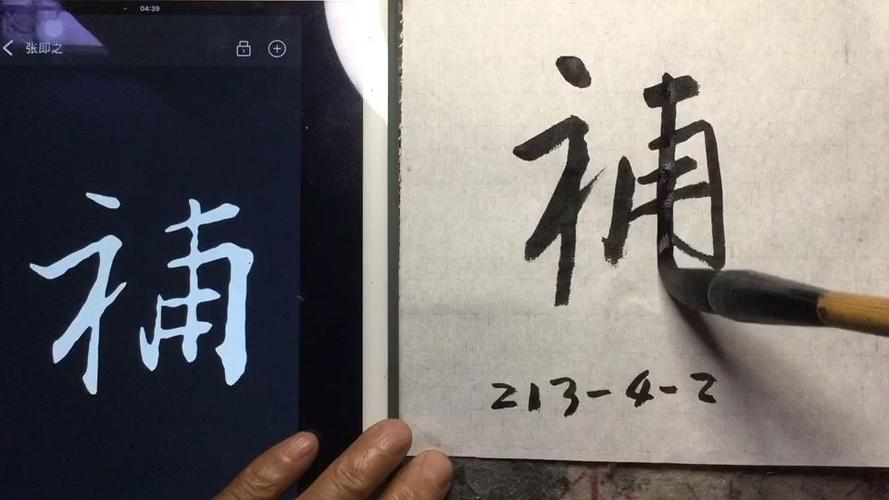 04:39
张即之
補
補
213-4-2